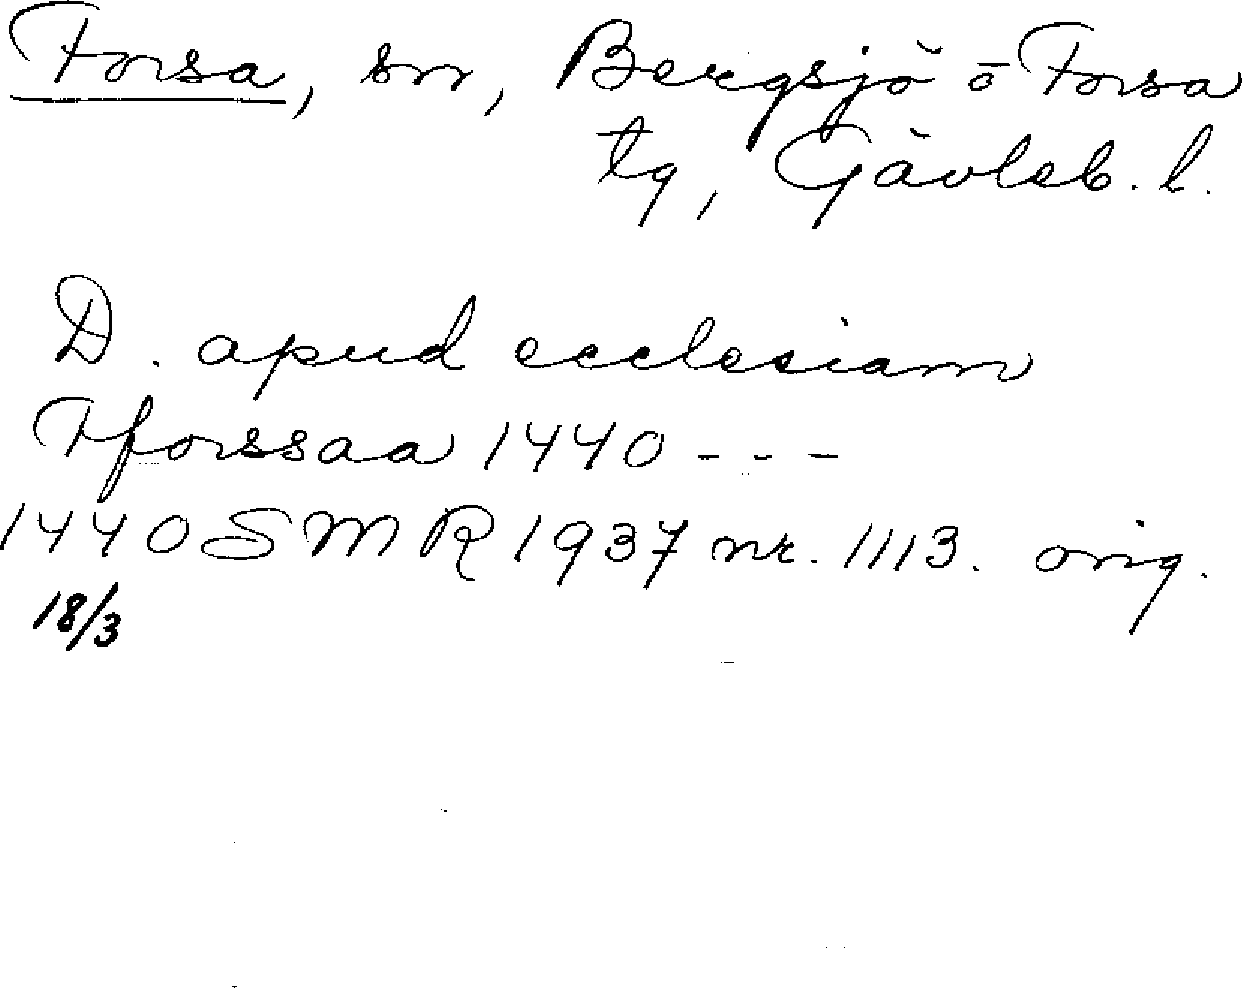 Forsa, sn, Bergsjö o Forsa
tg, Gävleb. l.
D. apud ecclesiam
Fforssaa 1440 - - -
1440 SMR 1937 nr. 1113. orig.
18/3